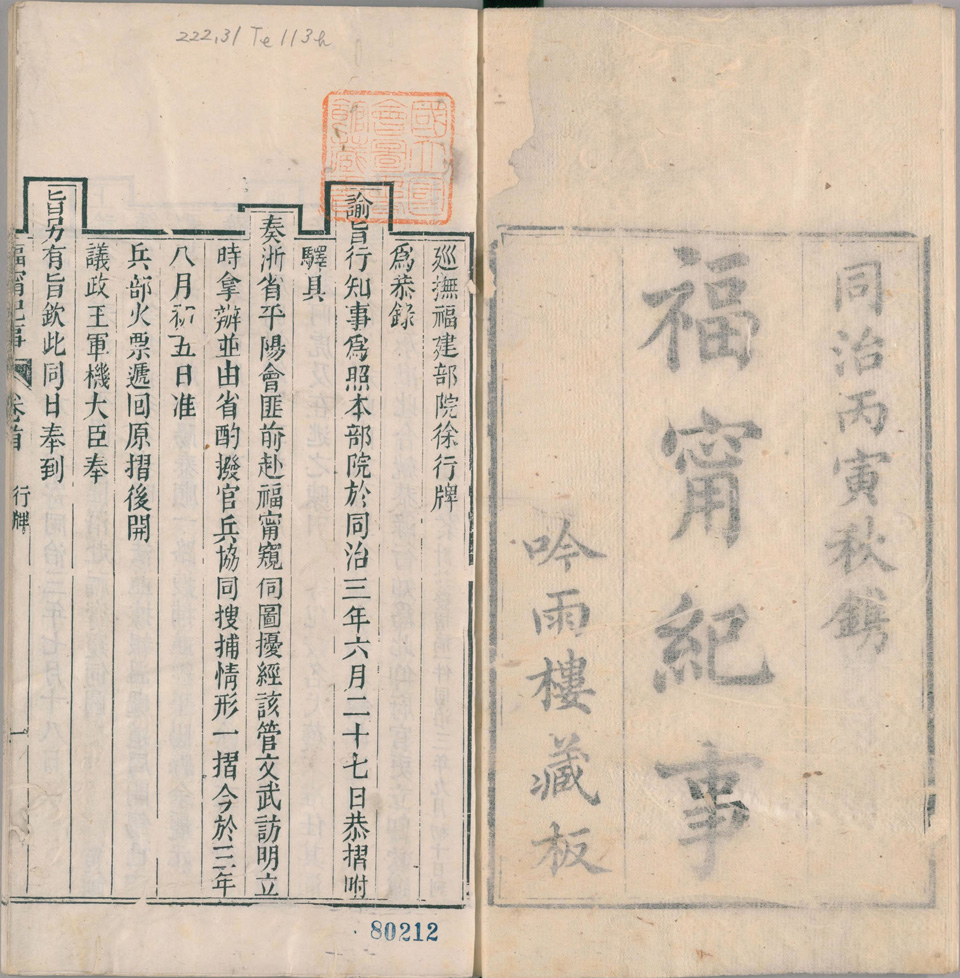 同治丙寅秋鐫
福甯紀事
吟雨樓藏板
222.31 Te113h
國立國會圖書館藏書
巡撫福建部院徐行牌
為恭錄
諭旨行知事為照本部院於同治三年六月二十七日恭摺咐
驛具
奏浙省平陽會匪前赴福甯窺伺圖擾經該管文武訪明立
時拿辦並由省酌撥官兵協同搜捕情形一摺今於三年
八月初五日准
兵部火票遞回原摺後開
議政王軍機大臣奉
旨另有旨欽此同日奉到
福甯紀事 卷首 行牌 一
80212